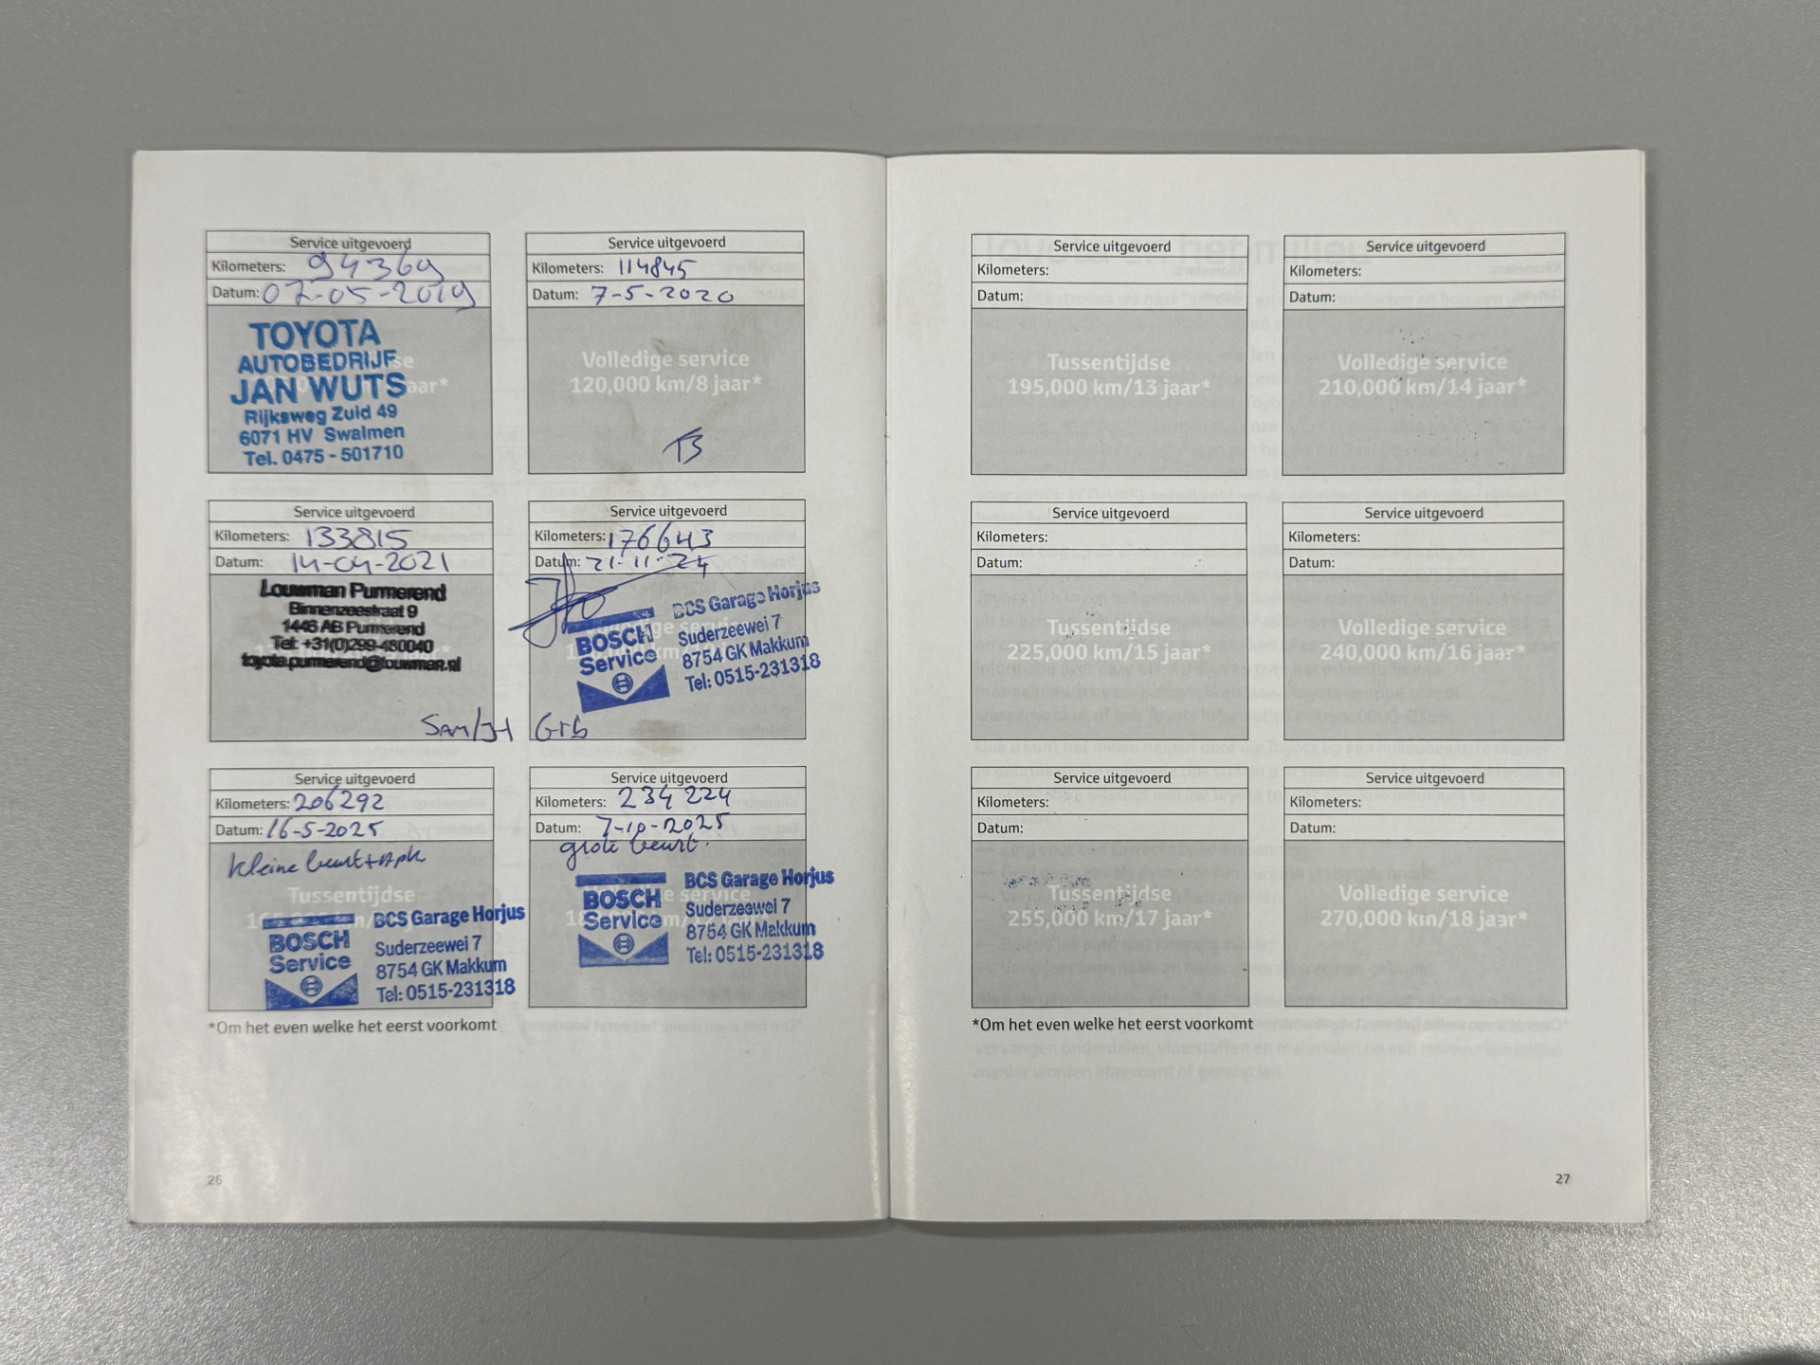 Service uitgevoerd
Kilometers: 94369
Datum: 07-05-2019
TOYOTA
AUTOBEDRIJF
JAN WUTS
Rijksweg Zuid 49
6071 HV Swalmen
Tel. 0475 - 501710
Service uitgevoerd
Kilometers: 114845
Datum: 7-5-2020
Volledige service
120,000 km/8 jaar*
TB
Service uitgevoerd
Kilometers: 133815
Datum: 14-04-2021
Louwman Purmerend
Binnenzeestraat 9
1446 AB Purmerend
Tel: +31(0)299-480040
toyota.purmerend@louwman.nl
SAM/JH
Service uitgevoerd
Kilometers: 176643
Datum: 21-11-24
BOSCH
Service
BCS Garage Horjus
Suderzeewei 7
8754 GK Makkum
Tel: 0515-231318
GrB
Service uitgevoerd
Kilometers: 206292
Datum: 16-5-2025
kleine beurt + Apk
Tussentijdse
BOSCH
Service
BCS Garage Horjus
Suderzeewei 7
8754 GK Makkum
Tel: 0515-231318
Service uitgevoerd
Kilometers: 234224
Datum: 7-10-2025
grote beurt.
BOSCH
Service
BCS Garage Horjus
Suderzeewei 7
8754 GK Makkum
Tel: 0515-231318
*Om het even welke het eerst voorkomt
26
Service uitgevoerd
Kilometers:
Datum:
Tussentijdse
195,000 km/13 jaar*
Service uitgevoerd
Kilometers:
Datum:
Volledige service
210,000 km/14 jaar*
Service uitgevoerd
Kilometers:
Datum:
Tussentijdse
225,000 km/15 jaar*
Service uitgevoerd
Kilometers:
Datum:
Volledige service
240,000 km/16 jaar*
Service uitgevoerd
Kilometers:
Datum:
Tussentijdse
255,000 km/17 jaar*
Service uitgevoerd
Kilometers:
Datum:
Volledige service
270,000 km/18 jaar*
*Om het even welke het eerst voorkomt
27